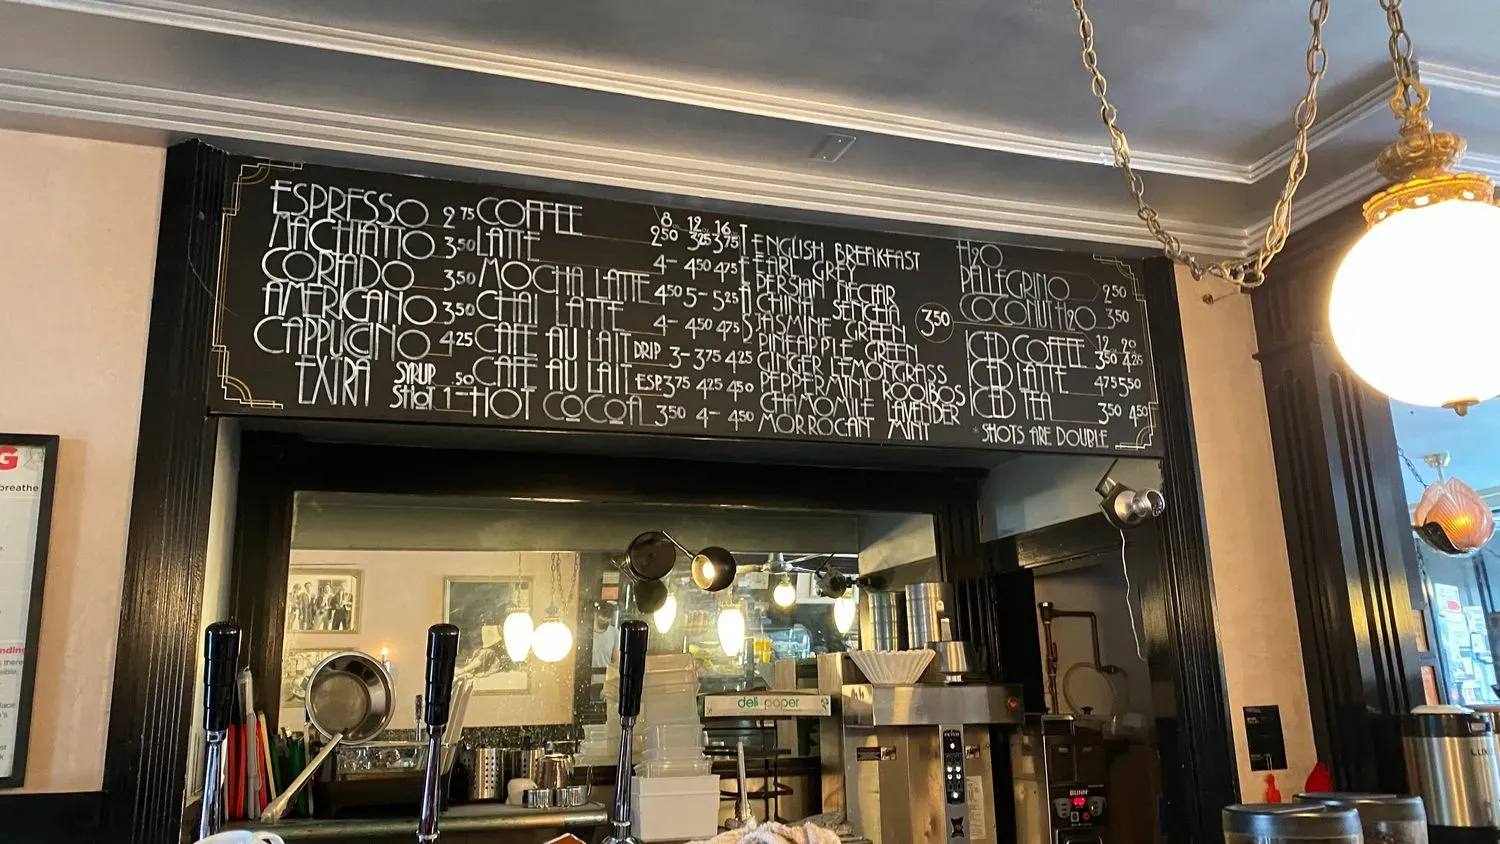 ESPRESSO 2 75
MACHIATTO 3 50
CORTADO 3 50
AMERICANO 3 50
CAPPUCINO 4 25
EXTRA SYRUP .50
SHOT 1-
8 12 16
COFFEE 2 50 3 25 3 75
LATTE 4- 4 50 4 75
MOCHA LATTE 4 50 5- 5 25
CHAI LATTE 4- 4 50 4 75
CAFE AU LAIT DRIP 3- 3 75 4 25
CAFE AU LAIT ESP. 3 75 4 25 4 50
HOT COCOA 3 50 4- 4 50
TEAS
ENGLISH BREAKFAST
EARL GREY
PERSIAN NECTAR
CHINA SENCHA
JASMINE GREEN
PINEAPPLE GREEN
GINGER LEMONGRASS
PEPPERMINT ROOIBOS
CHAMOMILE LAVENDER
MORROCAN MINT
3 50
H2O
PELLEGRINO 2 50
COCONUT H2O 3 50
12 20
ICED COFFEE 3 50 4 25
ICED LATTE 4 75 5 50
ICED TEA 3 50 4 50
* SHOTS ARE DOUBLE
G
breathe
deli paper
BUNN